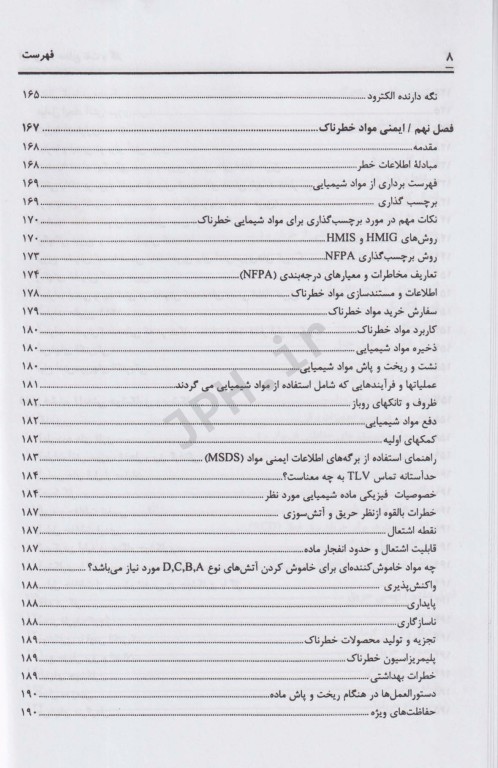 ۸ فهرست
نگه دارنده الکترود ۱۶۵
فصل نهم / ایمنی مواد خطرناک ۱۶۷
مقدمه ۱۶۸
مبادلهٔ اطلاعات خطر ۱۶۸
فهرست برداری از مواد شیمیایی ۱۶۹
برچسب گذاری ۱۶۹
نکات مهم در مورد برچسب‌گذاری برای مواد شیمایی خطرناک ۱۷۰
روش‌های HMIG و HMIS ۱۷۰
روش برچسب‌گذاری NFPA ۱۷۳
تعاریف مخاطرات و معیارهای درجه‌بندی (NFPA) ۱۷۴
اطلاعات و مستندسازی مواد خطرناک ۱۷۸
سفارش خرید مواد خطرناک ۱۷۹
کاربرد مواد خطرناک ۱۸۰
ذخیره مواد شیمیایی ۱۸۰
نشت و ریخت و پاش مواد شیمیایی ۱۸۰
عملیاتها و فرآیندهایی که شامل استفاده از مواد شیمیایی می گردند ۱۸۱
ظروف و تانکهای روباز ۱۸۲
دفع مواد شیمیایی ۱۸۲
کمکهای اولیه ۱۸۲
راهنمای استفاده از برگه‌های اطلاعات ایمنی مواد (MSDS) ۱۸۳
حدآستانه تماس TLV به چه معناست؟ ۱۸۴
خصوصیات فیزیکی ماده شیمیایی مورد نظر ۱۸۴
خطرات بالقوه ازنظر حریق و آتش‌سوزی ۱۸۷
نقطه اشتعال ۱۸۷
قابلیت اشتعال و حدود انفجار ماده ۱۸۷
چه مواد خاموش‌کننده‌ای برای خاموش کردن آتش‌های نوع D,C,B,A مورد نیاز می‌باشد؟ ۱۸۸
واکنش‌پذیری ۱۸۸
پایداری ۱۸۸
ناسازگاری ۱۸۸
تجزیه و تولید محصولات خطرناک ۱۸۹
پلیمریزاسیون خطرناک ۱۸۹
خطرات بهداشتی ۱۸۹
دستورالعمل‌ها در هنگام ریخت و پاش ماده ۱۹۰
حفاظت‌های ویژه ۱۹۰
JPH.ir